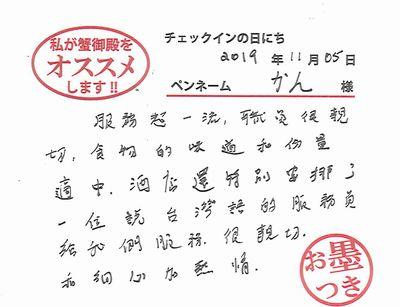 私が蟹御殿を
オススメ
します!!
チェックインの日にち
2019 年 11 月 05 日
ペンネーム かん 様
服務超一流,職員很親
切,食物的味道和份量
適中.酒店還特別安排了
一位説台灣語的服務員
給我們服務.很親切.
和細心加熱情.
お墨
つき